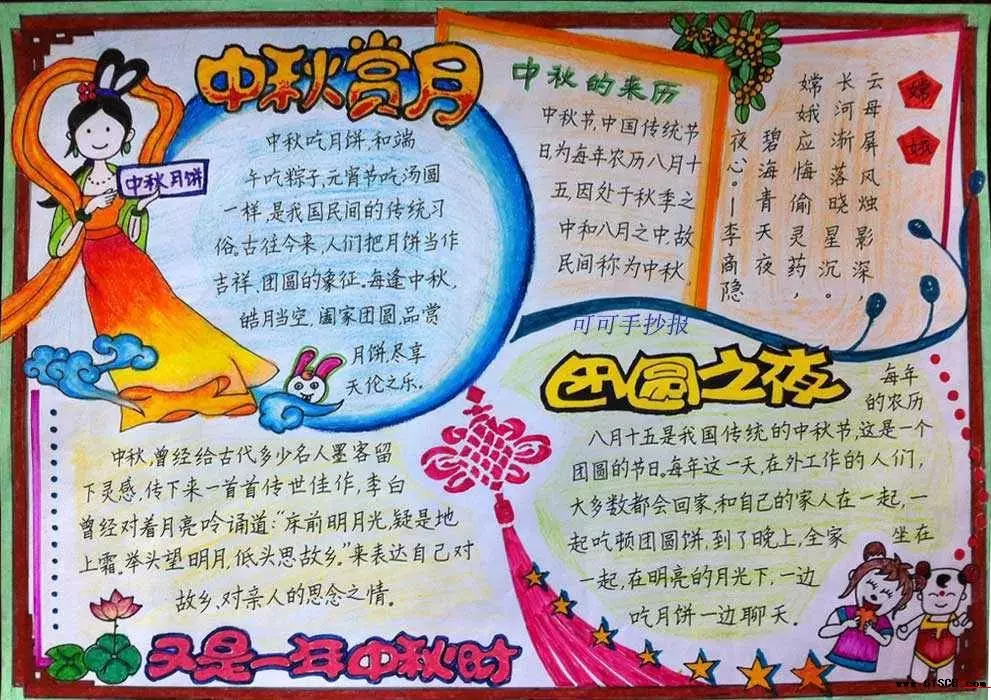 中秋赏月
中秋吃月饼,和端
午吃粽子,元宵节吃汤圆
一样,是我国民间的传统习
俗。古往今来,人们把月饼当作
吉祥、团圆的象征。每逢中秋,
皓月当空,阖家团圆,品赏
月饼,尽享
天伦之乐。
中秋月饼
中秋的来历
中秋节,中国传统节
日为每年农历八月十
五,因处于秋季之
中和八月之中,故
民间称为中秋。
嫦娥
云母屏风烛影深,
长河渐落晓星沉。
嫦娥应悔偷灵药,
碧海青天夜
夜心。—李商隐
可可手抄报
团圆之夜
每年
的农历
八月十五是我国传统的中秋节,这是一个
团圆的节日。每年这一天,在外工作的人们,
大多数都会回家,和自己的家人在一起,一
起吃顿团圆饼,到了晚上,全家坐在
一起,在明亮的月光下,一边
吃月饼一边聊天.
中秋,曾经给古代多少名人墨客留
下灵感,传下来一首首传世佳作,李白
曾经对着月亮吟诵道:“床前明月光,疑是地
上霜。举头望明月,低头思故乡。”来表达自己对
故乡、对亲人的思念之情。
又是一年中秋时